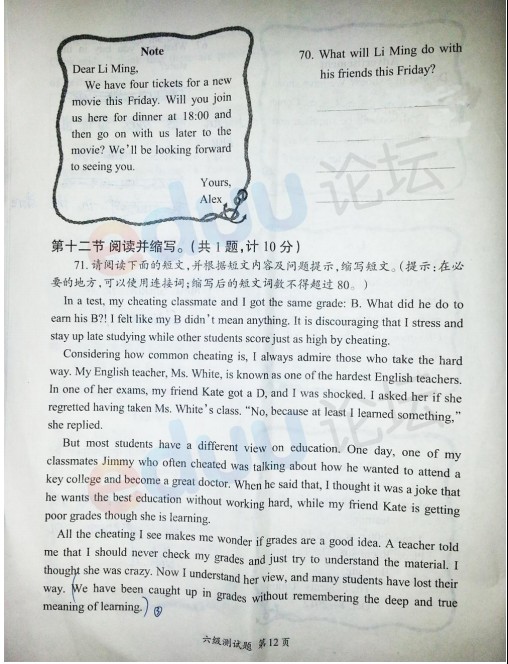 Note
Dear Li Ming,
We have four tickets for a new
movie this Friday. Will you join
us here for dinner at 18:00 and
then go on with us later to the
movie? We'll be looking forward
to seeing you.
Yours,
Alex
70. What will Li Ming do with
his friends this Friday?
第十二节 阅读并缩写。(共1题,计10分)
71. 请阅读下面的短文,并根据短文内容及问题提示,缩写短文。(提示:在必
要的地方,可以使用连接词;缩写后的短文词数不得超过80。)
In a test, my cheating classmate and I got the same grade: B. What did he do to
earn his B?! I felt like my B didn't mean anything. It is discouraging that I stress and
stay up late studying while other students score just as high by cheating.
Considering how common cheating is, I always admire those who take the hard
way. My English teacher, Ms. White, is known as one of the hardest English teachers.
In one of her exams, my friend Kate got a D, and I was shocked. I asked her if she
regretted having taken Ms. White's class. "No, because at least I learned something,"
she replied.
But most students have a different view on education. One day, one of my
classmates Jimmy who often cheated was talking about how he wanted to attend a
key college and become a great doctor. When he said that, I thought it was a joke that
he wants the best education without working hard, while my friend Kate is getting
poor grades though she is learning.
All the cheating I see makes me wonder if grades are a good idea. A teacher told
me that I should never check my grades and just try to understand the material. I
thought she was crazy. Now I understand her view, and many students have lost their
way. (We have been caught up in grades without remembering the deep and true
meaning of learning.)
六级测试题 第12页
eduu论坛
eduu论坛